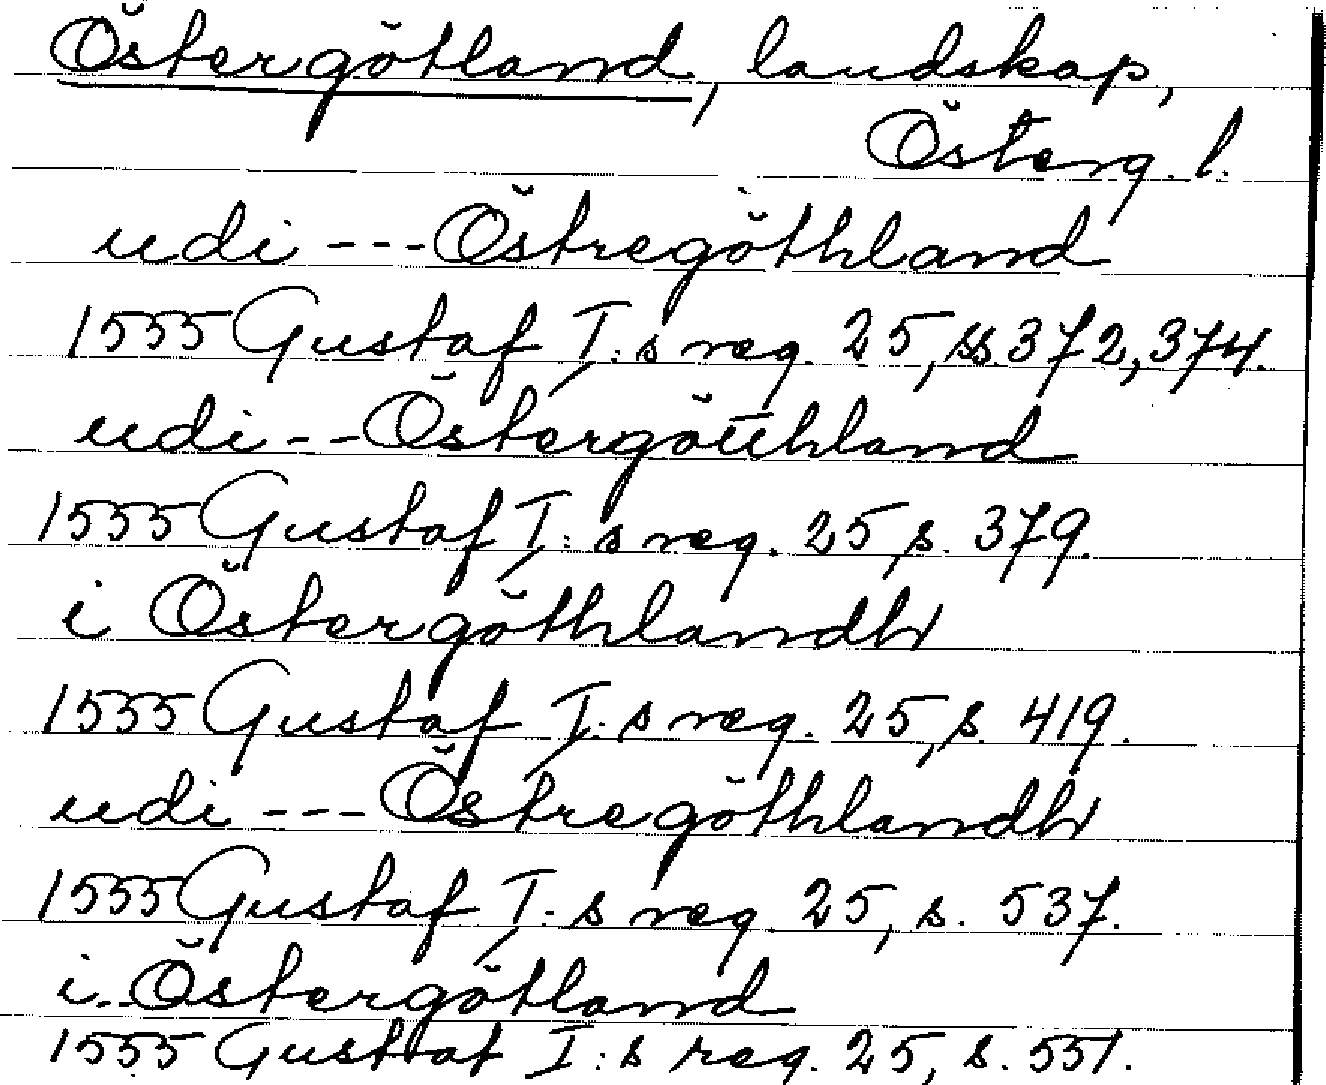 Östergötland, landskap,
Österg. l.
udi --- Östregöthland
1555 Gustaf I:s reg. 25, ss. 372, 374.
udi -- Östergötthland
1555 Gustaf I:s reg. 25, s. 379.
i Östergöthlandh
1555 Gustaf I:s reg. 25, s. 419.
udi --- Östregöthlandh
1555 Gustaf I:s reg. 25, s. 537.
i .. Östergötland
1555 Gustaf I:s reg. 25, s. 551.